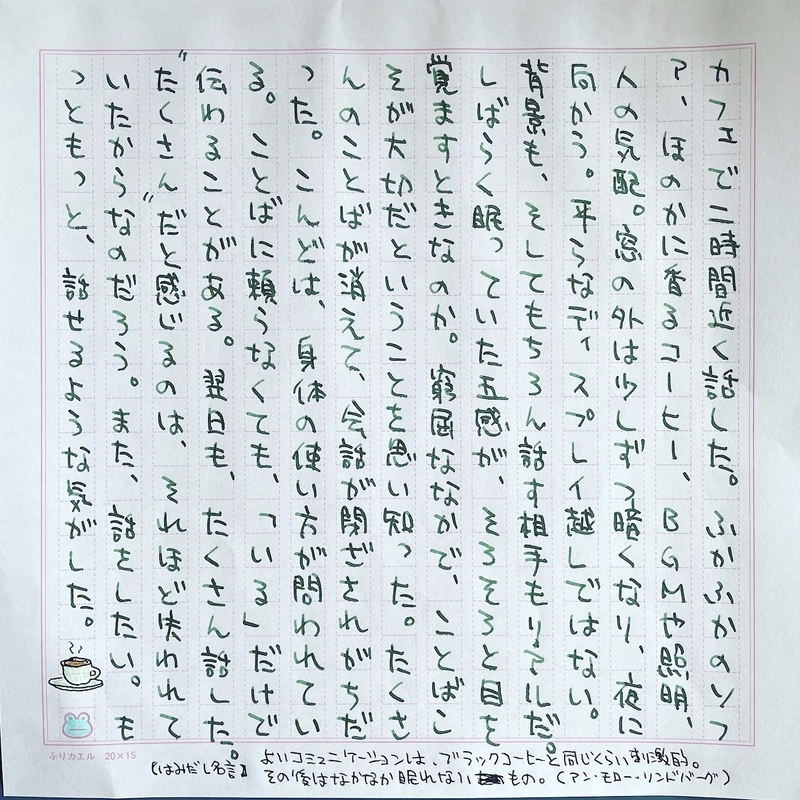 カフェで二時間近く話した。ふかふかのソフ
ァ、ほのかに香るコーヒー、BGMや照明、
人の気配。窓の外は少しずつ暗くなり、夜に
向かう。平らなディスプレイ越しではない。
背景も、そしてもちろん話す相手もリアルだ。
しばらく眠っていた五感が、そろそろと目を
覚ますときなのか。窮屈ななかで、ことばこ
そが大切だということを思い知った。たくさ
んのことばが消えて、会話が閉ざされがちだ
った。こんどは、身体の使い方が問われてい
る。ことばに頼らなくても、「いる」だけで
伝わることがある。翌日も、たくさん話した。
"たくさん"だと感じるのは、それほど失われて
いたからなのだろう。また、話をしたい。も
っともっと、話せるような気がした。
ふりカエル 20×15
【はみだし名言】 よいコミュニケーションは、ブラックコーヒーと同じくらい刺激的。
その後はなかなか眠れないもの。(アン・モロー・リンドバーグ)